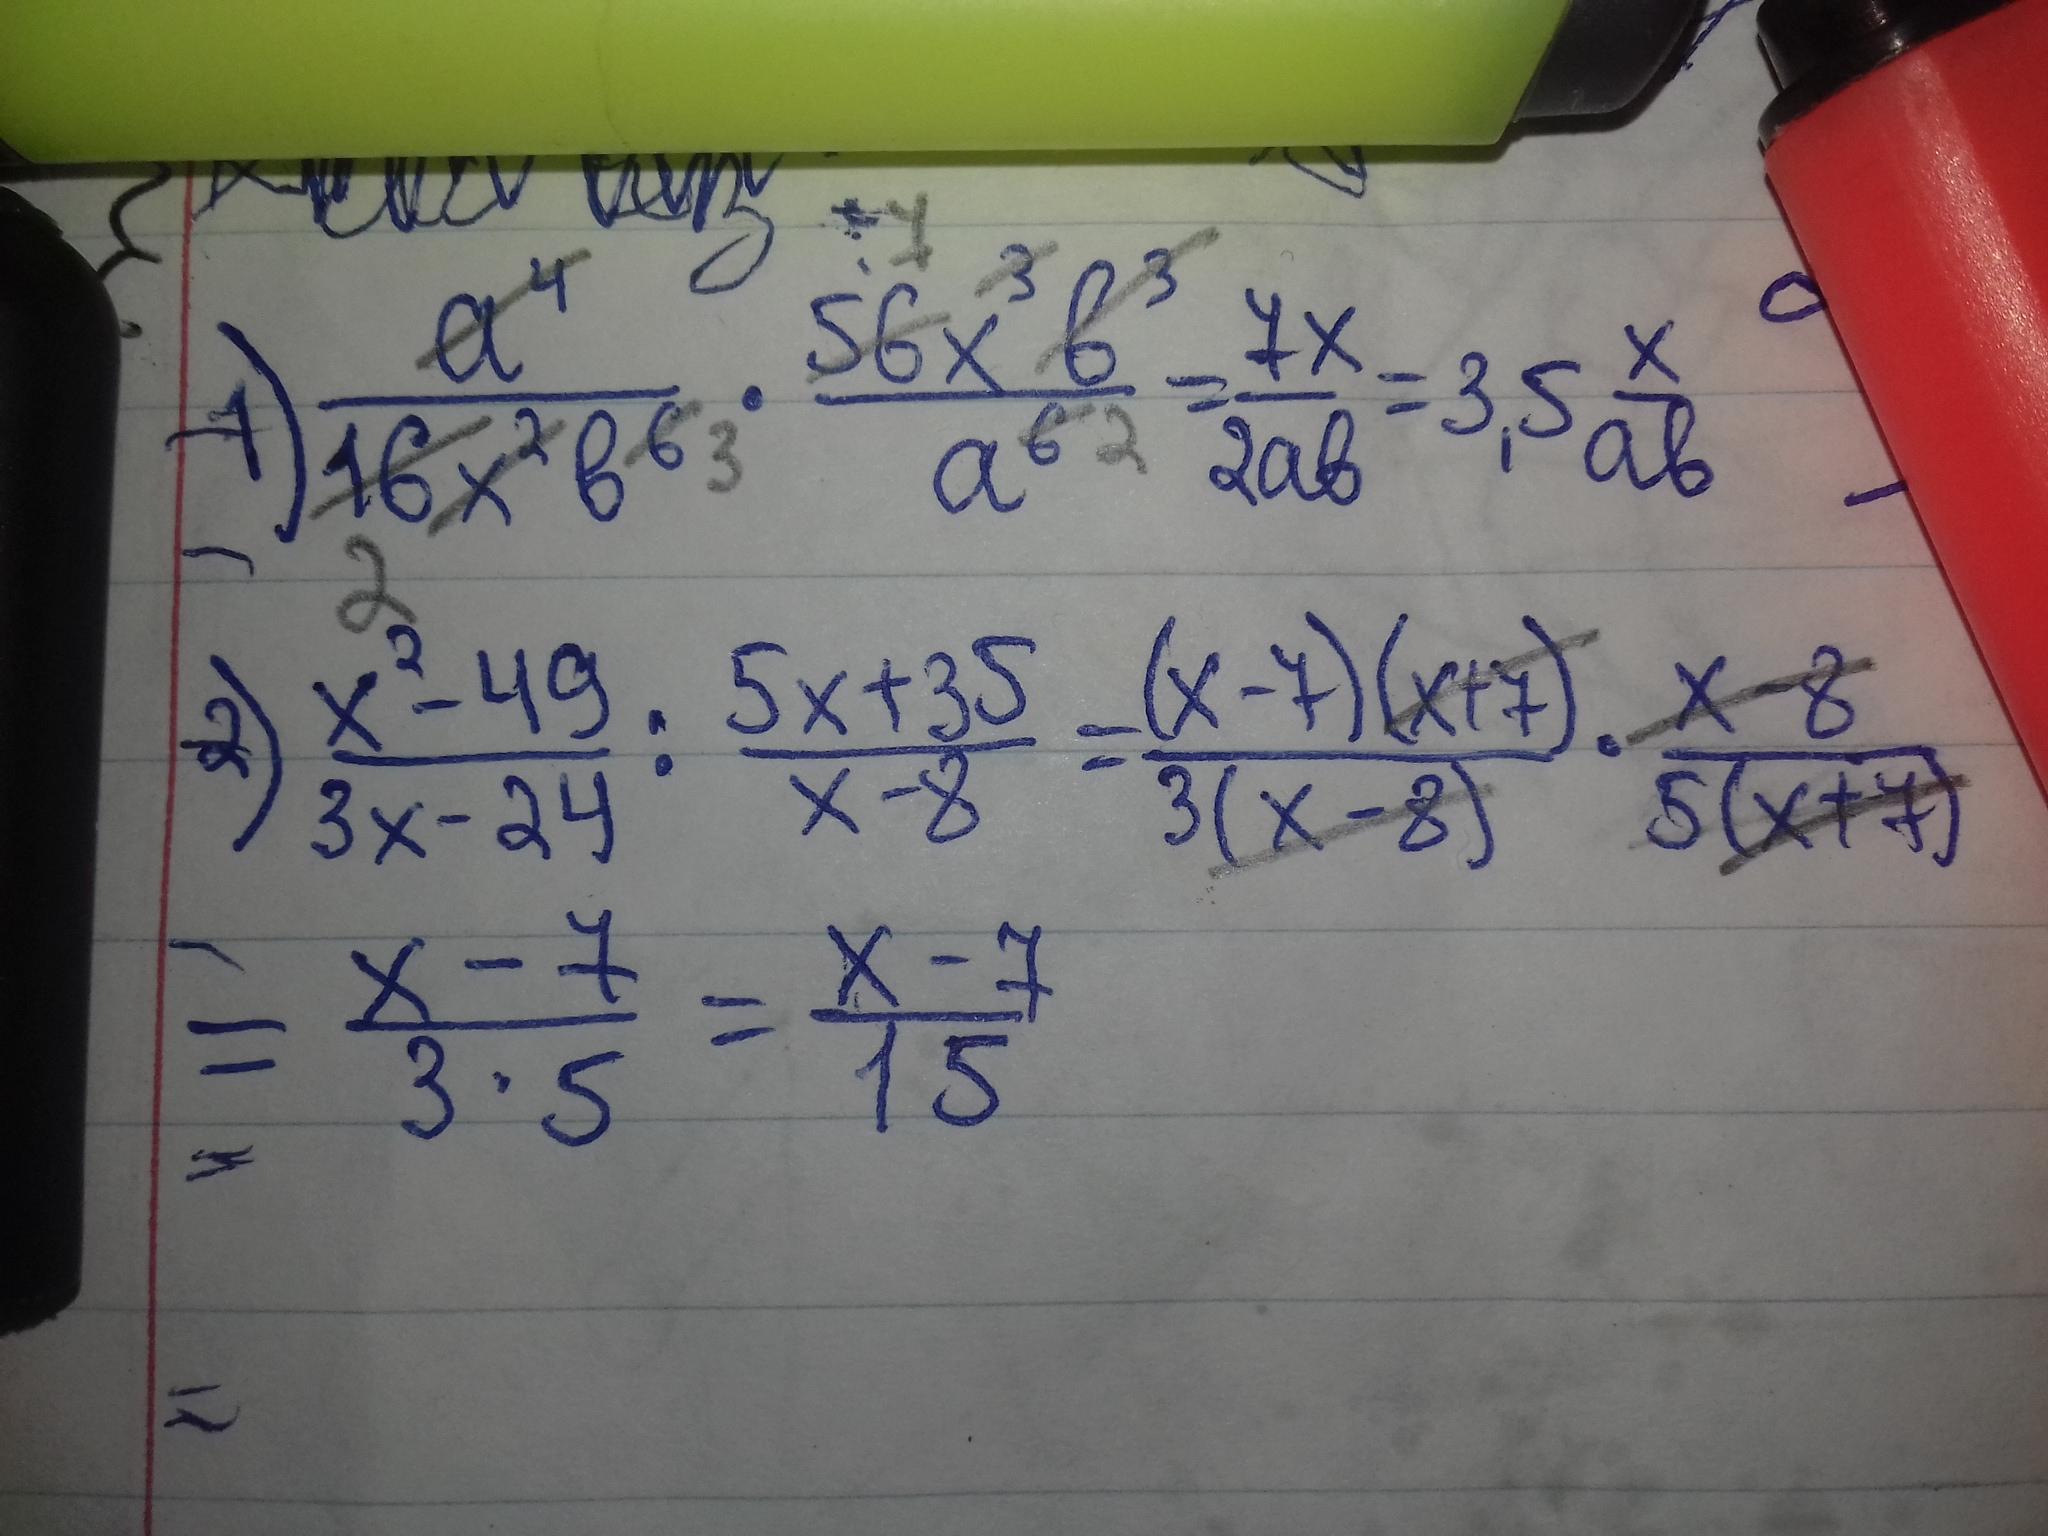 1) a⁴/16x²b⁶ · 56x³b³/a⁶ = 7x/2ab = 3,5 x/ab
2) x²-49/3x-24 : 5x+35/x-8 = (x-7)(x+7)/3(x-8) · x-8/5(x+7)
= x-7/3·5 = x-7/15